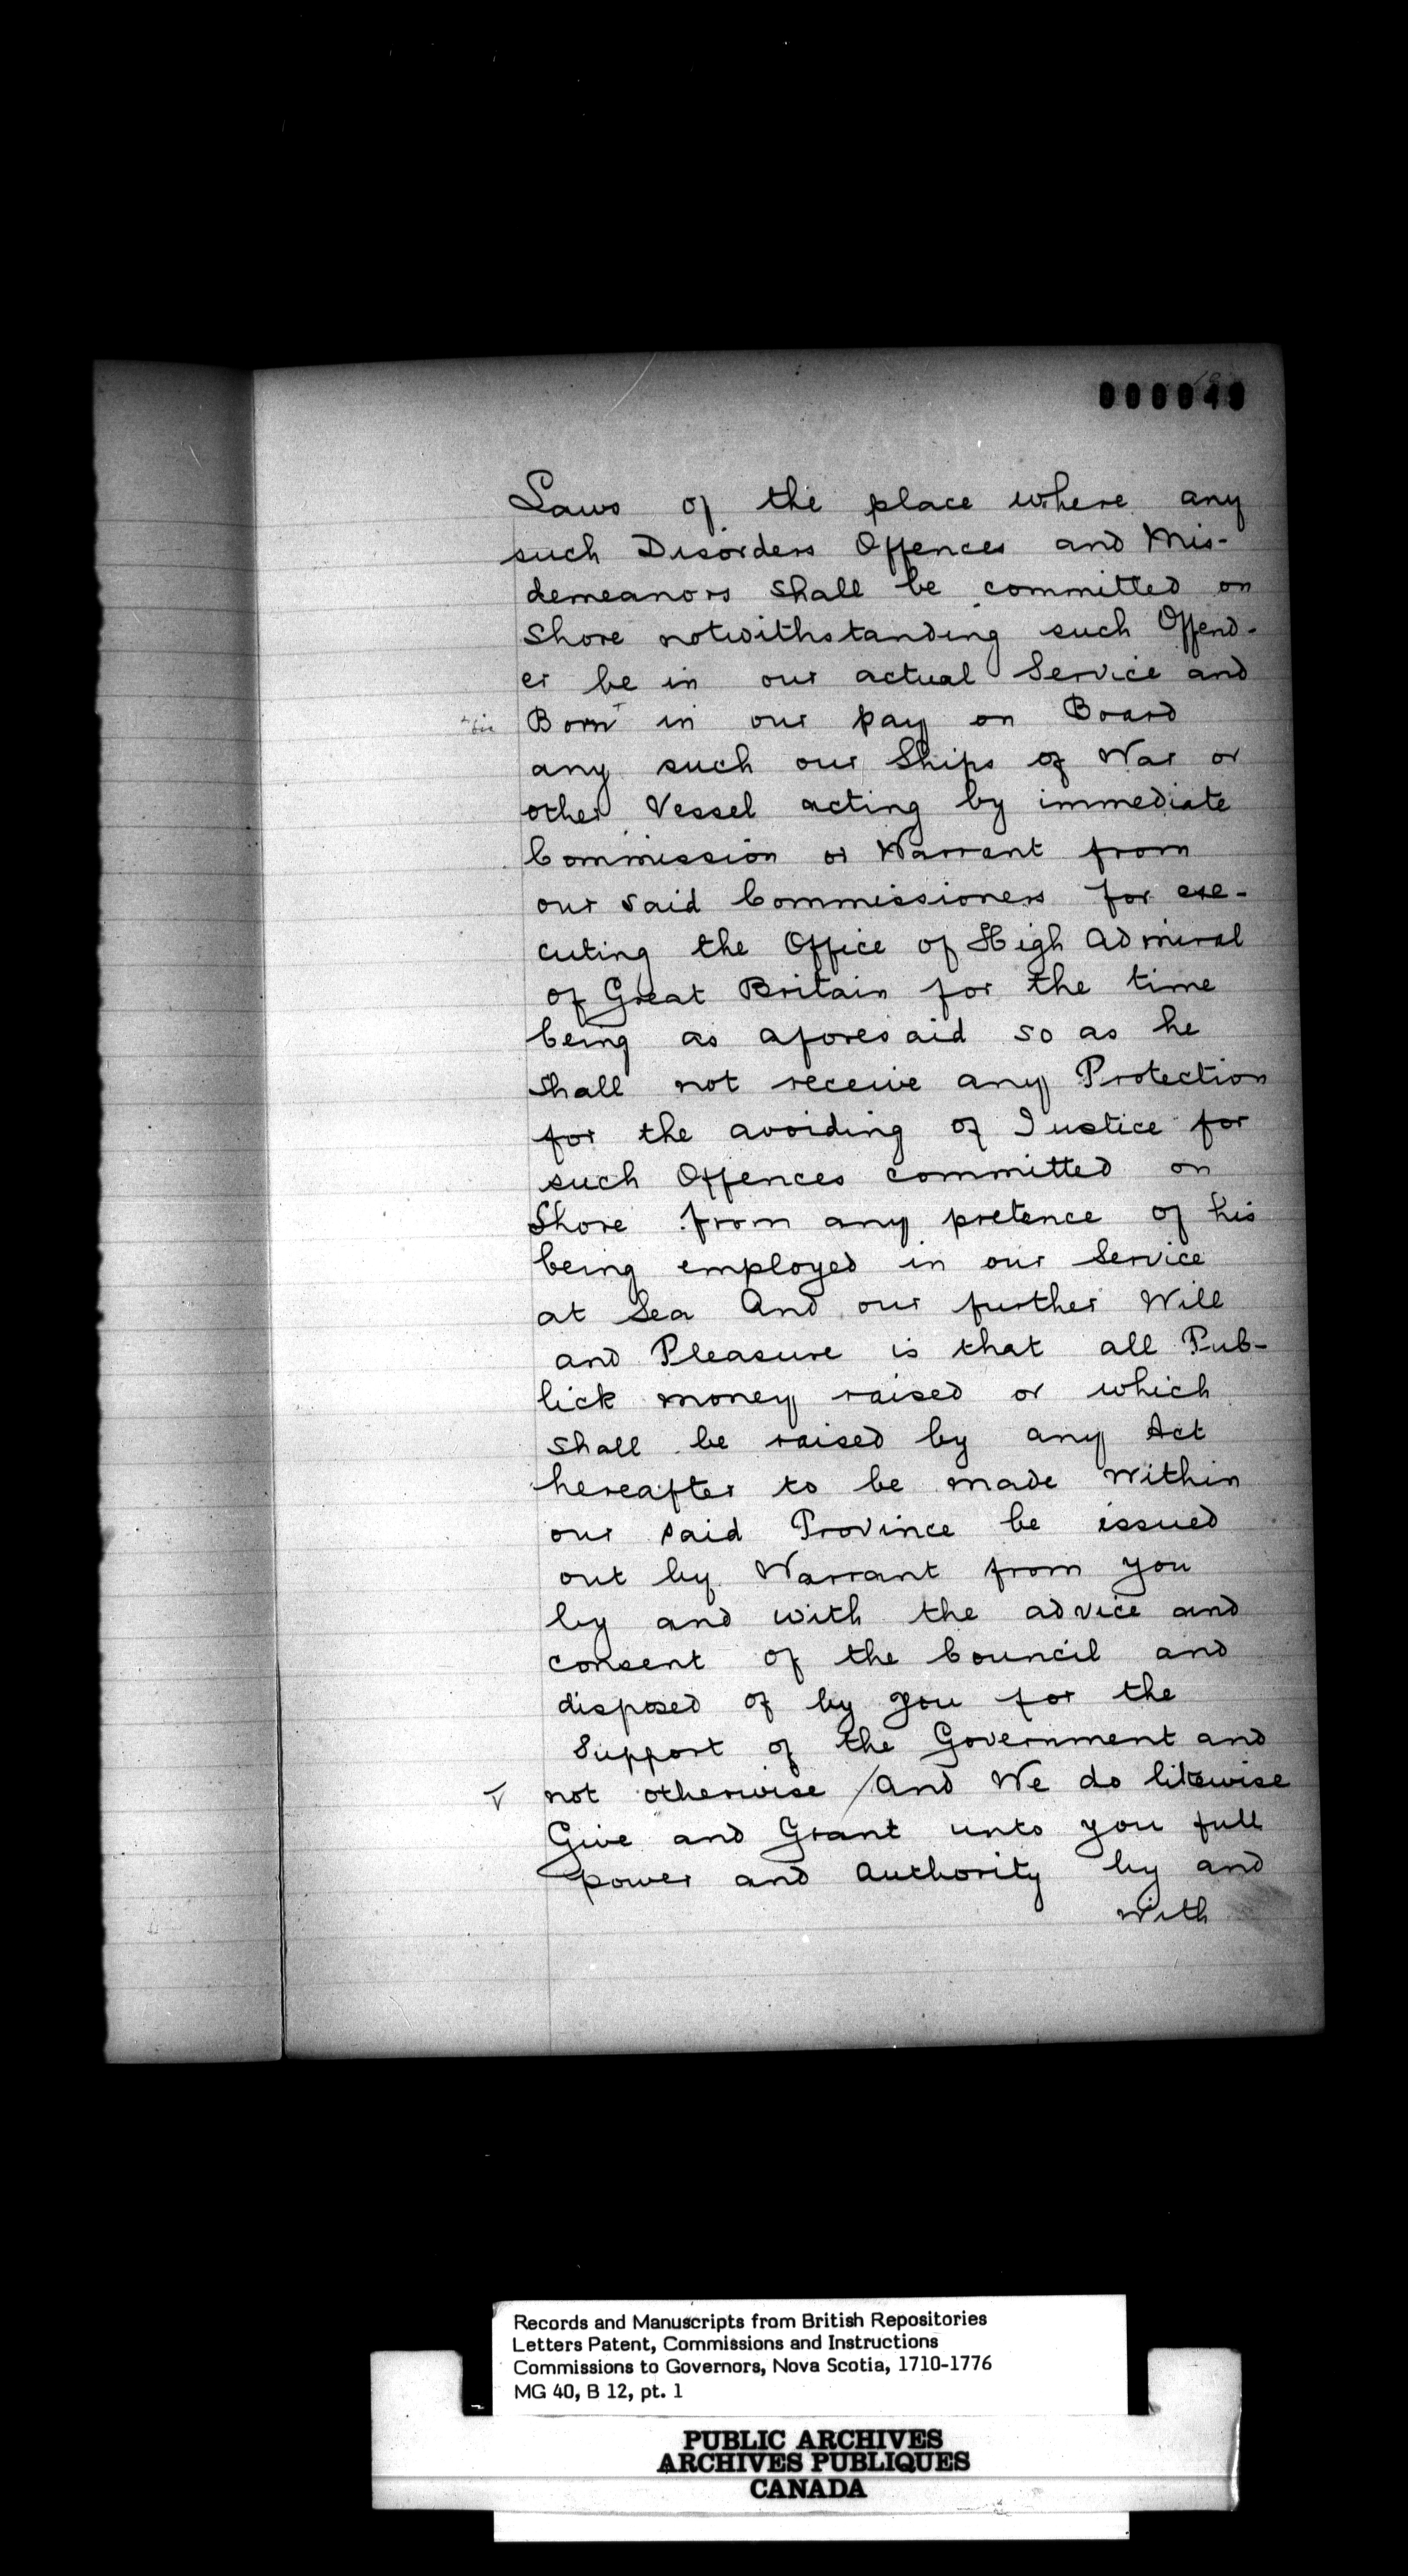 000049
Laws of the place where any
such Disorders Offences and Mis-
demeanors shall be committed on
Shore notwithstanding such Offend-
er be in our actual Service and
Born in our pay on Board
any such our Ships of War or
other Vessel acting by immediate
Commission or Warrant from
our said Commissioners for exe-
cuting the Office of High Admiral
of Great Britain for the time
being as aforesaid so as he
shall not receive any Protection
for the avoiding of Justice for
such Offences committed on
Shore from any pretence of his
being employed in our Service
at Sea And our further Will
and Pleasure is that all Pub-
lick money raised or which
shall be raised by any Act
hereafter to be made within
our said Province be issued
out by Warrant from you
by and with the advice and
consent of the Council and
disposed of by you for the
Support of the Government and
not otherwise / And We do likewise
Give and Grant unto you full
power and Authority by and
with
Records and Manuscripts from British Repositories
Letters Patent, Commissions and Instructions
Commissions to Governors, Nova Scotia, 1710-1776
MG 40, B 12, pt. 1
PUBLIC ARCHIVES
ARCHIVES PUBLIQUES
CANADA